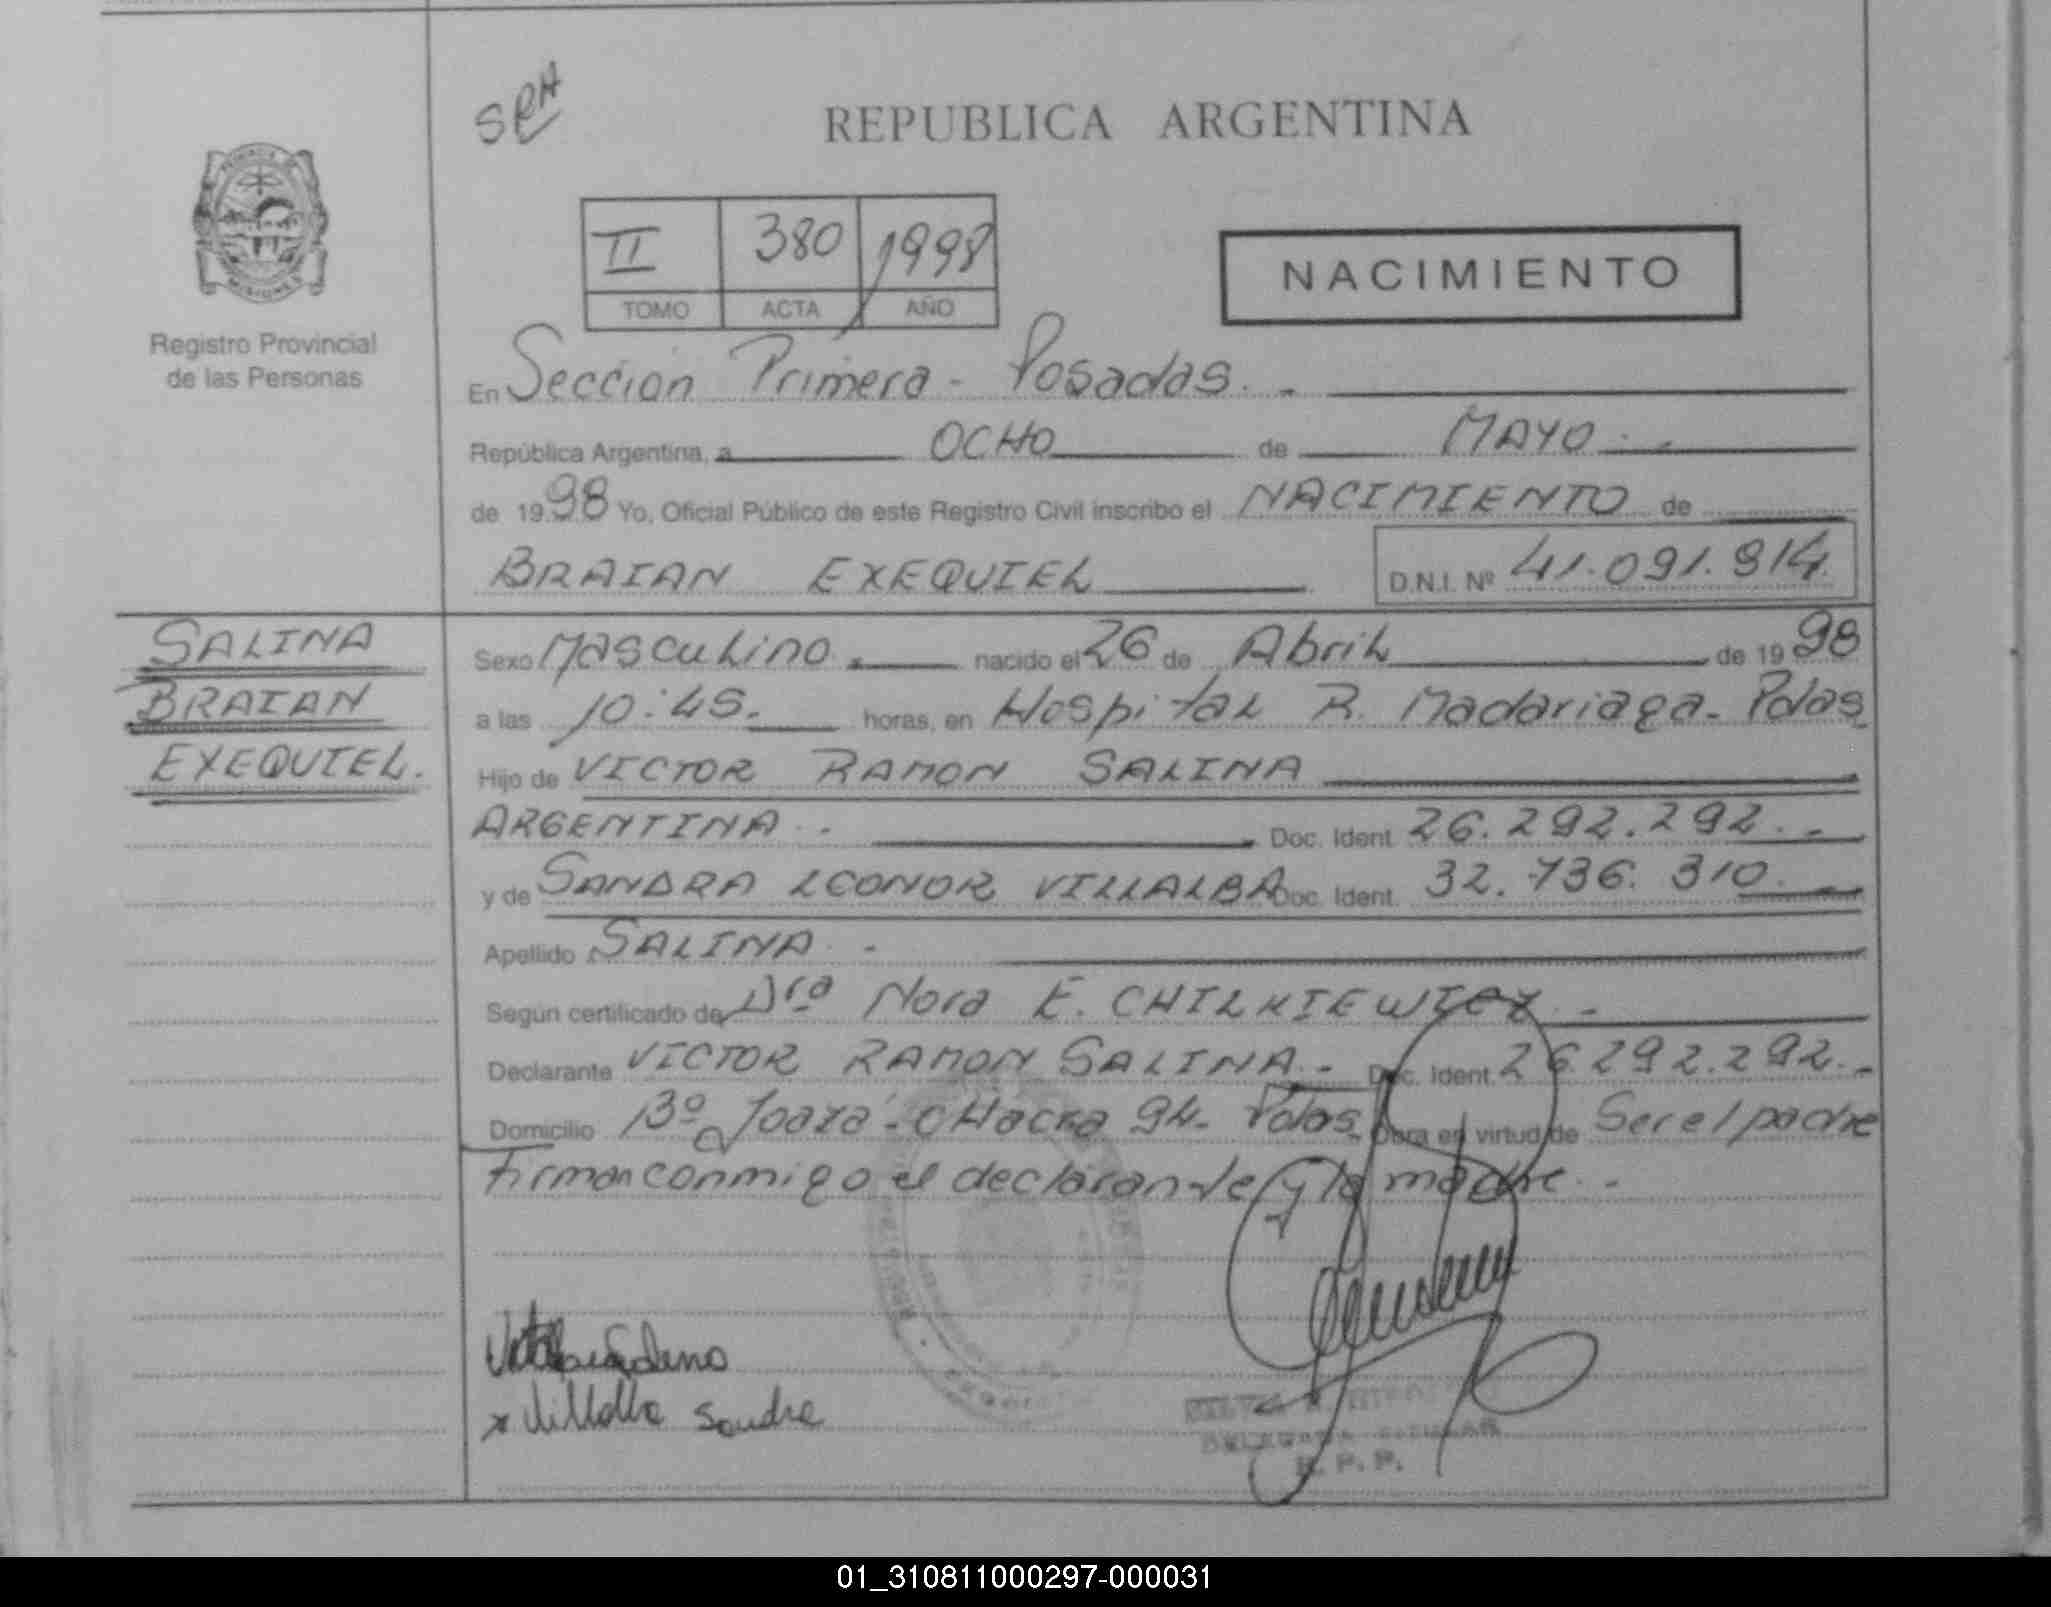 SRH
REPUBLICA ARGENTINA
II 380 1998
TOMO ACTA AÑO
NACIMIENTO
MISIONES
Registro Provincial
de las Personas
En Sección Primera - Posadas. -
República Argentina, a OCHO de MAYO. -
de 1998 Yo, Oficial Público de este Registro Civil inscribo el NACIMIENTO de
BRAIAN EXEQUIEL D.N.I. Nº 41.091.814.
SALINA
BRAIAN
EXEQUIEL.
Sexo Masculino. nacido el 26 de Abril de 1998
a las 10:45. horas, en Hospital R. Madariaga - Pdas.
Hijo de VICTOR RAMON SALINA
ARGENTINA. Doc. Ident. 26.292.292. -
y de SANDRA LEONOR VILLALBA Doc. Ident. 32.736.310. -
Apellido SALINA. -
Según certificado de Dra Nora E. CHILKIEWICZ. -
Declarante VICTOR RAMON SALINA. - Doc. Ident. 26.292.292. -
Domicilio Bº Yoazá - CHacra 94 - Pdas. Obra en virtud de Ser el padre
firman conmigo el declarante y la madre. -
x Villalba Sandra
DELEGADA TITULAR
R. P. P.
01_310811000297-000031